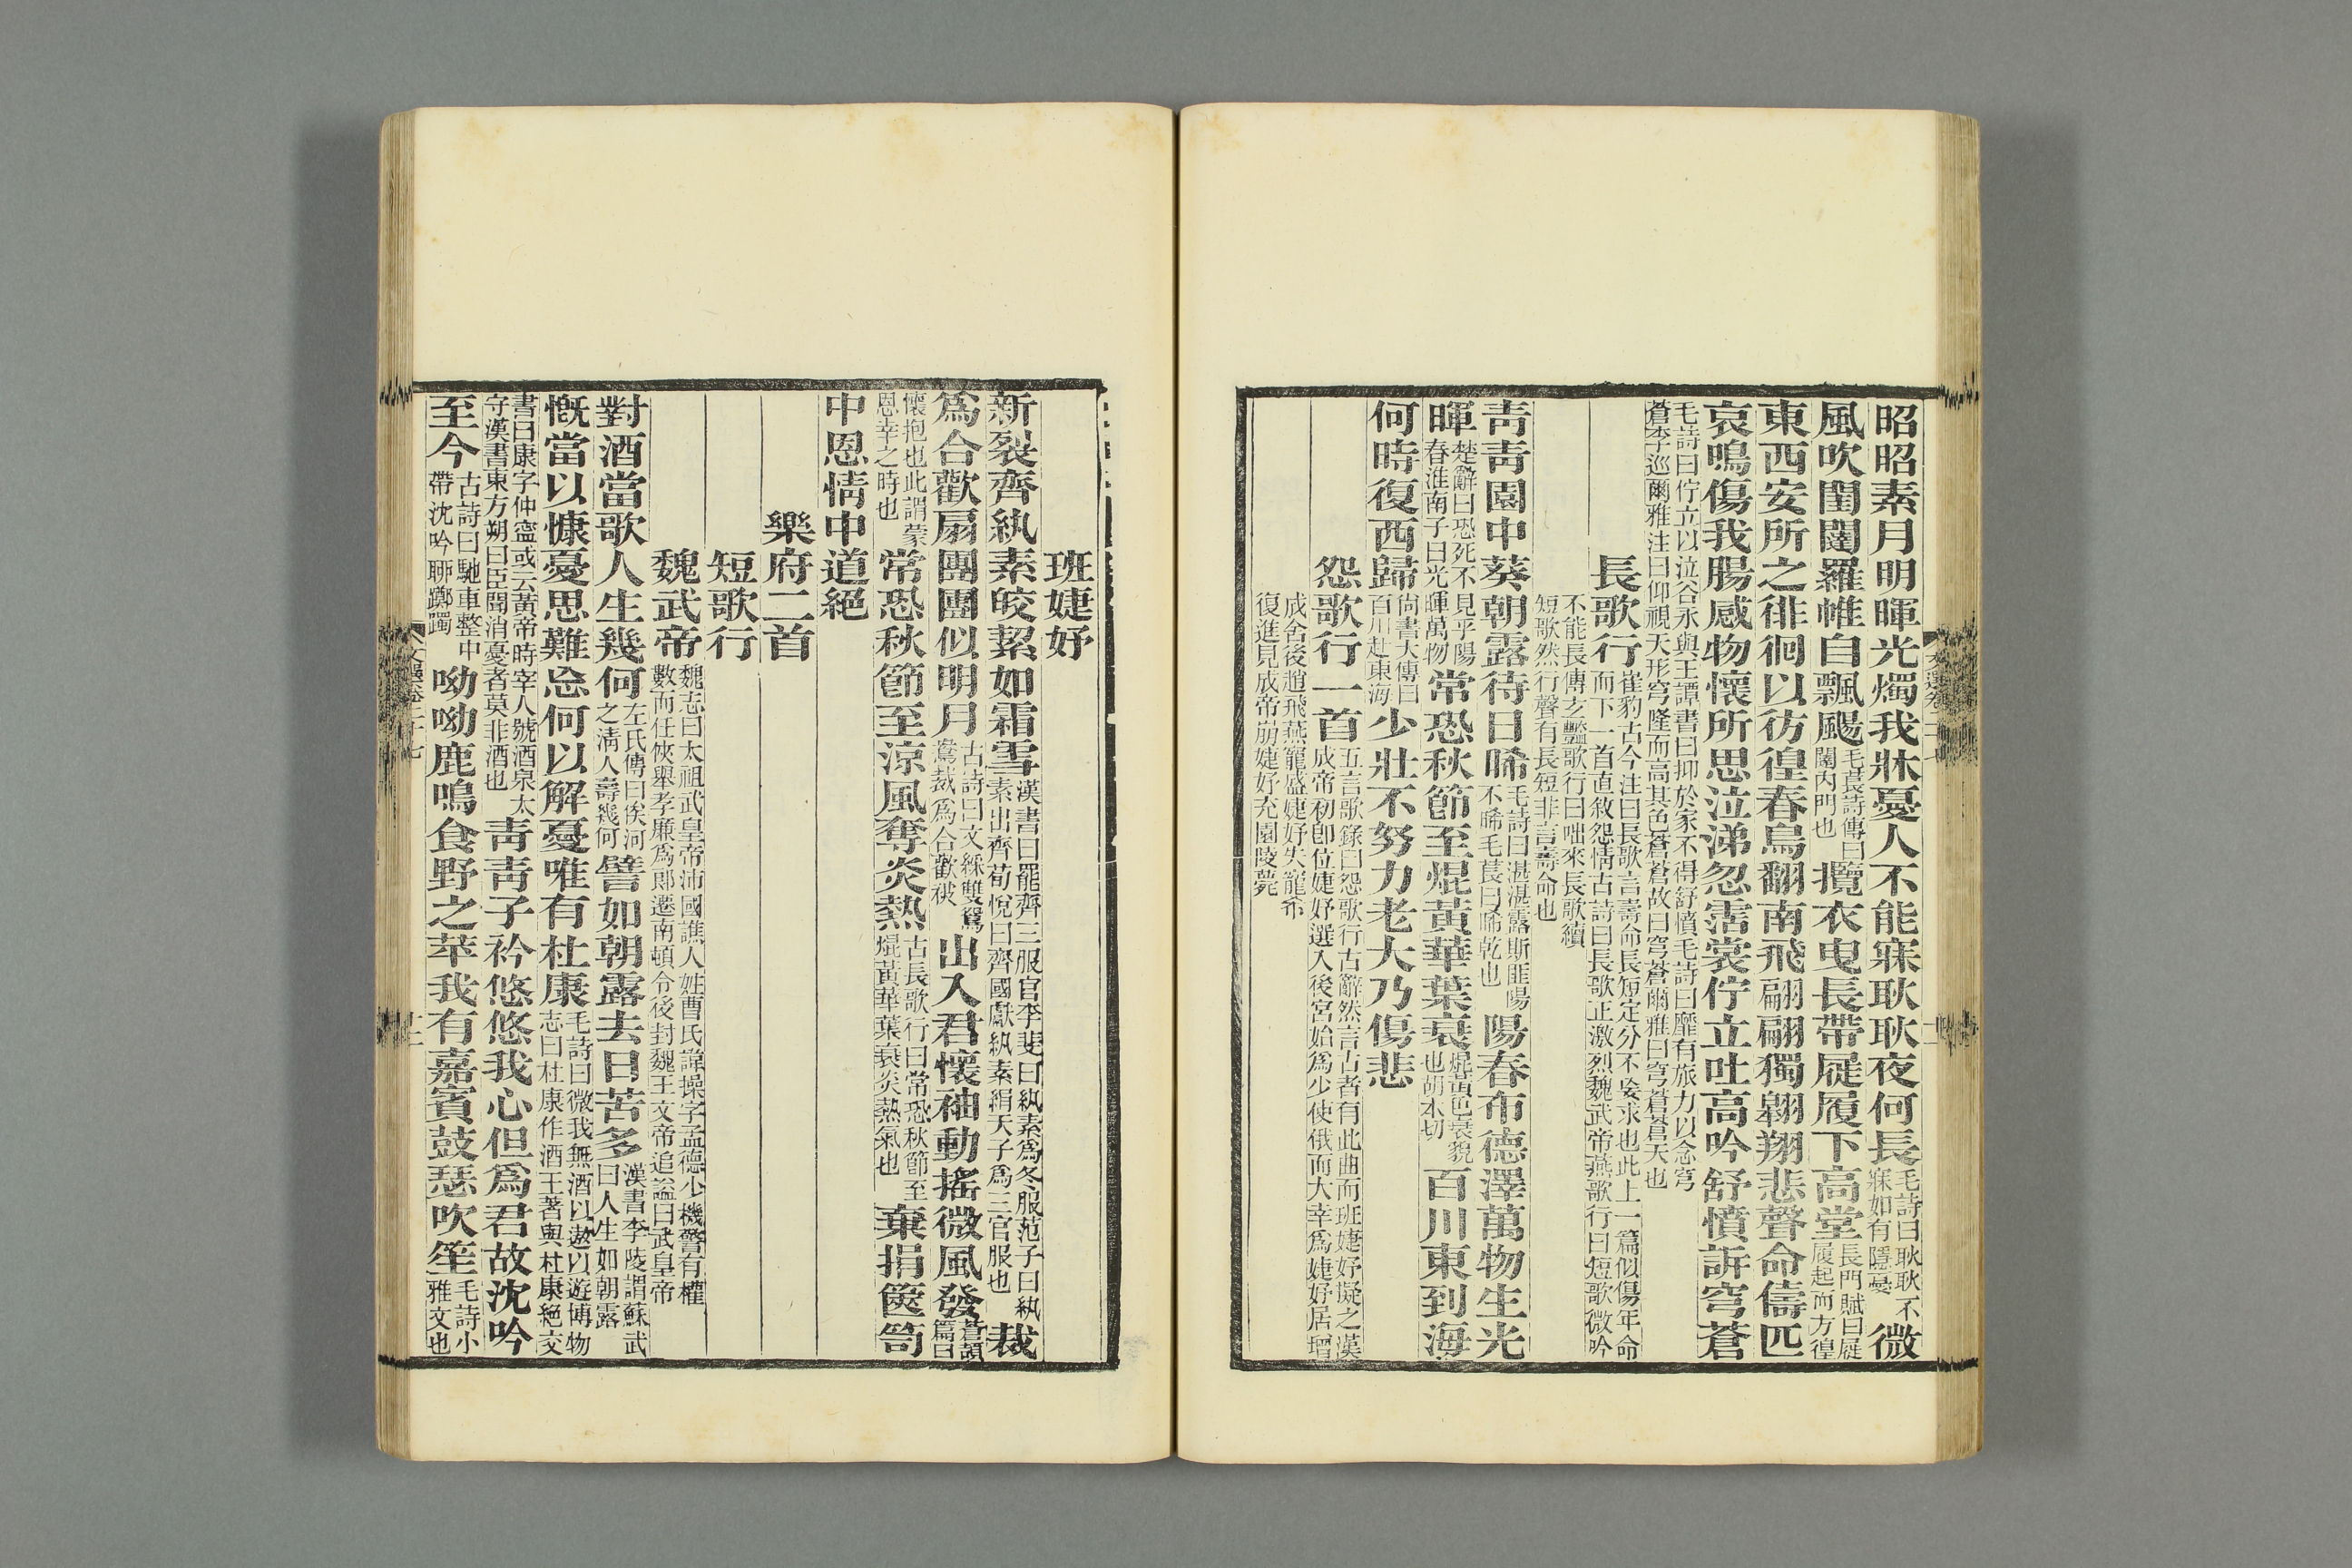 昭昭素月明暉光燭我牀憂人不能寐耿耿夜何長毛詩曰耿耿不寐如有隱憂微
風吹閨闥羅帷自飄颺毛萇詩傳曰闥內門也攬衣曳長帶屣履下高堂長門賦曰屣履起而方徨
東西安所之徘徊以彷徨春鳥翻南飛翩翩獨翱翔悲聲命儔匹
哀鳴傷我腸感物懷所思泣涕忽霑裳佇立吐高吟舒憤訴穹蒼
毛詩曰佇立以泣谷永與王譚書曰抑於家不得舒憤毛詩曰靡有旅力以念穹
蒼李巡爾雅注曰仰視天形穹隆而高其色蒼蒼故曰穹蒼爾雅曰穹蒼蒼天也
長歌行崔豹古今注曰長歌言壽命長短定分不妄求也此上一篇似傷年命
而下一首直敘怨情古詩曰長歌正激烈魏武帝燕歌行曰短歌微吟
不能長傅玄豔歌行曰咄來長歌續
短歌然行聲有長短非言壽命也
青青園中葵朝露待日晞毛詩曰湛湛露斯匪陽不晞毛萇曰晞乾也陽春布德澤萬物生光
暉楚辭曰恐死不見乎陽春淮南子曰光暉萬物常恐秋節至焜黃華葉衰焜黃色衰貌也胡本切百川東到海
何時復西歸尚書大傳曰百川赴東海少壯不努力老大乃傷悲
怨歌行一首五言歌錄曰怨歌行古辭然言古者有此曲而班婕妤擬之漢
成帝初卽位婕妤選入後宮始為少使俄而大幸為婕妤居增
成舍後趙飛燕寵盛婕妤失寵希
復進見成帝崩婕妤充園陵薨
班婕妤
新裂齊紈素皎絜如霜雪漢書曰罷齊三服官李斐曰紈素為冬服范子曰紈素出齊荀悅曰齊國獻紈素絹天子為三官服也裁
為合歡扇團團似明月古詩曰文綵雙鴛鴦裁為合歡被出入君懷袖動搖微風發蒼頡篇曰
懷抱也此謂蒙恩幸之時也常恐秋節至涼風奪炎熱古長歌行曰常恐秋節至焜黃華葉衰炎熱氣也棄捐篋笥
中恩情中道絕
樂府二首
短歌行
魏武帝魏志曰太祖武皇帝沛國譙人姓曹氏諱操字孟德少機警有權
數而任俠舉孝廉為郎遷南頓令後封魏王文帝追諡曰武皇帝
對酒當歌人生幾何左氏傳曰俟河之清人壽幾何譬如朝露去日苦多漢書李陵謂蘇武曰人生如朝露
慨當以慷憂思難忘何以解憂唯有杜康毛詩曰微我無酒以遨以遊博物志曰杜康作酒王著與杜康絕交
書曰康字仲寧或云黃帝時宰人號酒泉太守漢書東方朔曰臣聞消憂者莫非酒也青青子衿悠悠我心但為君故沈吟
至今古詩曰馳車整中帶沈吟聊躑躅呦呦鹿鳴食野之苹我有嘉賓鼓瑟吹笙毛詩小雅文也